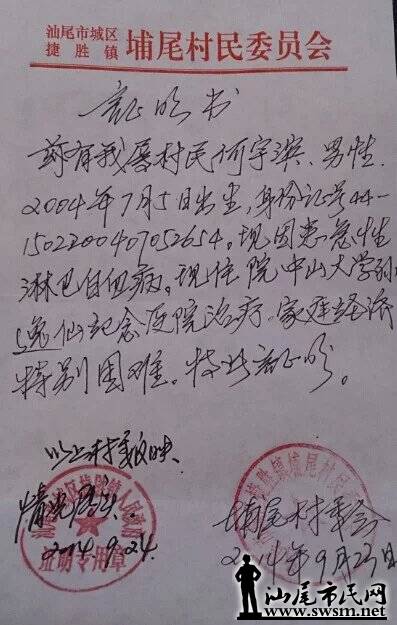 汕尾市城区
捷胜镇
埔尾村民委员会
证明书
兹有我番村民何宇滨、男性.
2004年7月5日出生,身份证号44-
1502200407052654。现因患急性
淋巴白血病。现住院中山大学孙
逸仙纪念医院治疗.家庭经济
特别困难。特此证明。
以上村委反映
情况属实.
2014.9.24.
证明专用章
埔尾村委会
2014年9月23日
捷胜镇埔尾村民
汕尾市民网
www.swsm.net